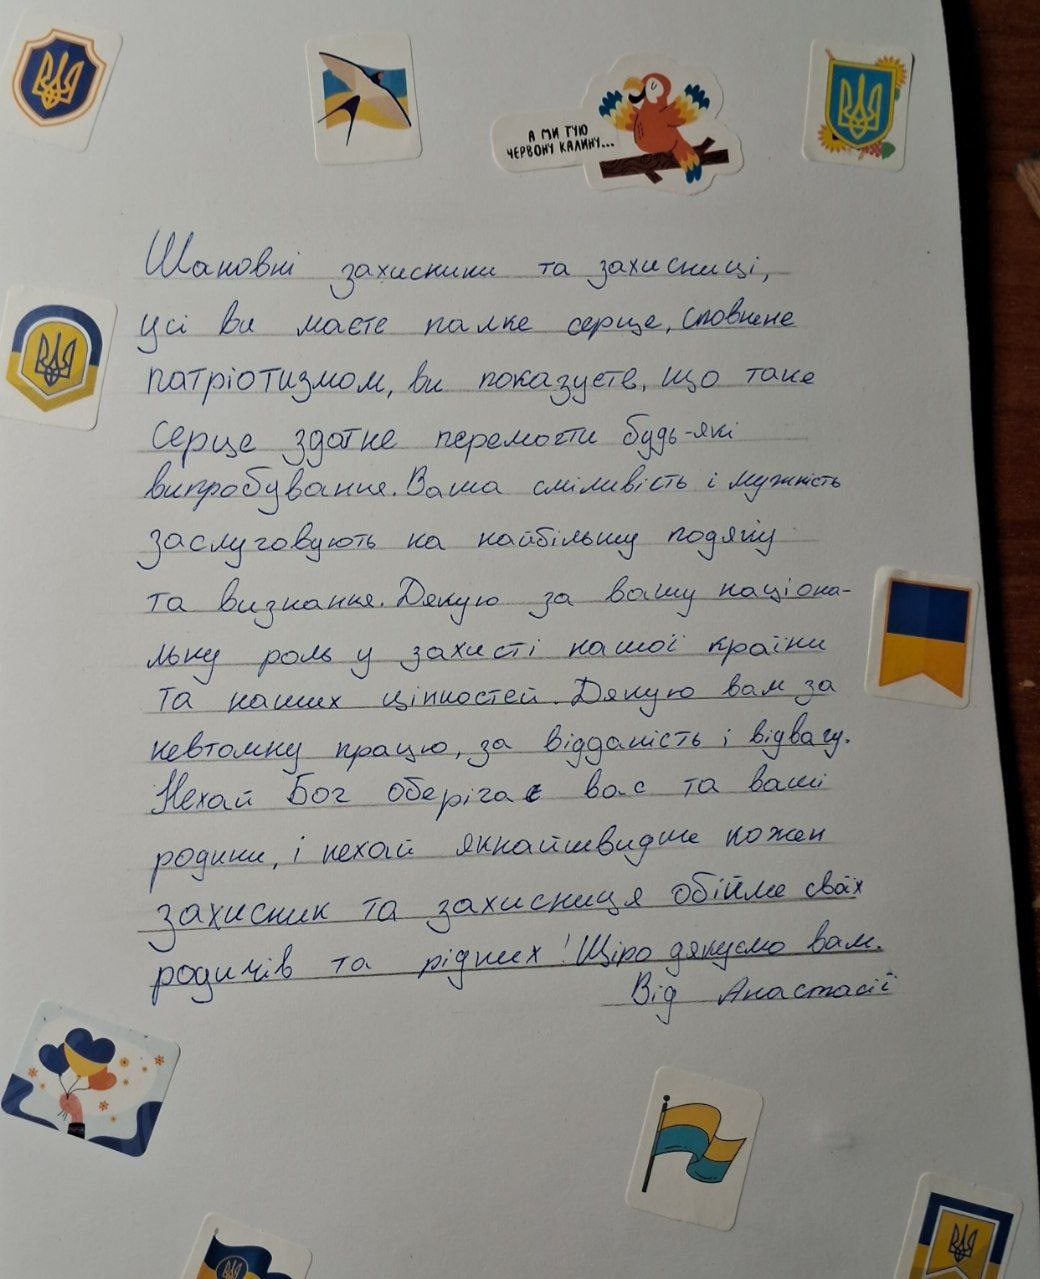 А МИ ТУЮ
ЧЕРВОНУ КАЛИНУ...
Шановні захисники та захисниці,
усі ви маєте палке серце, сповнене
патріотизмом, ви показуєтв, що таке
серце здатне перемогти будь-які
випробування. Ваша сміливість і мужність
заслуговують на найбільшу подяку
та визнання. Дякую за вашу націона-
льну роль у захисті нашої країни
та наших цінностей. Дякую вам за
невтомну працю, за відданість і відвагу.
Нехай Бог оберігає вас та ваші
родини, і нехай якнайшвидше кожен
захисник та захисниця обійме своїх
родичів та рідних! Щиро дякуємо вам.
Від Анастасії